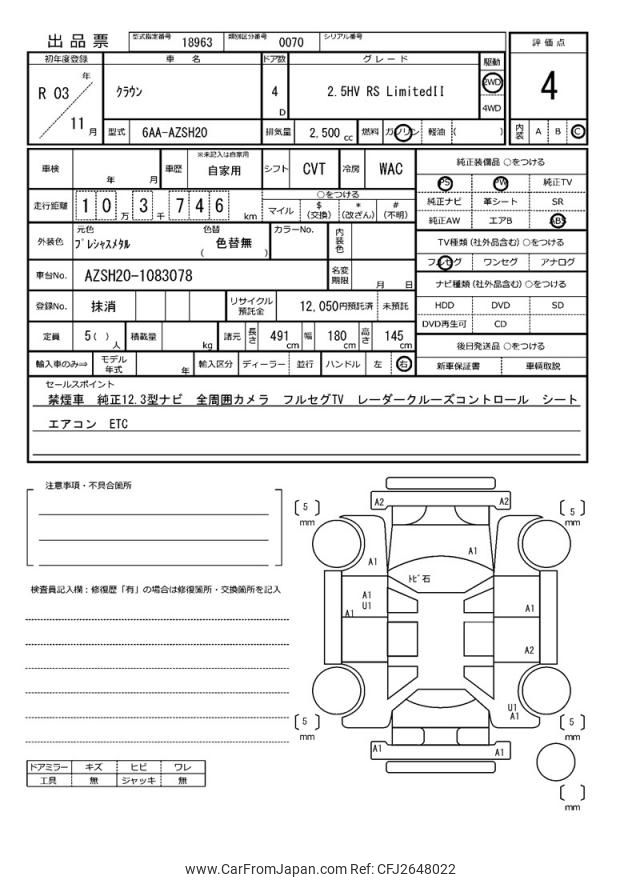 出品票 型式指定番号 18963 類別区分番号 0070 シリアル番号
評価点
4
内装 A B C
初年度登録 車名 ドア数 グレード 駆動
R 03 年 11 月 クラウン 4 D 2.5HV RS LimitedII 2WD 4WD
型式 6AA-AZSH20 排気量 2,500 cc 燃料 ガソリン 軽油 ( )
車検 年 月 車歴 ※未記入は自家用 自家用 シフト CVT 冷房 WAC
走行距離 1 0 万 3 千 7 4 6 km ○をつける マイル $(交換) *(改ざん) #(不明)
外装色 元色 プレシャスメタル 色替 ( 色替無 ) カラーNo. 内装色
車台No. AZSH20-1083078 名変期限 月 日
登録No. 抹消 リサイクル預託金 12,050円預託済 未預託
定員 5( ) 人 積載量 kg 諸元 長さ 491 cm 幅 180 cm 高さ 145 cm
輸入車のみ⇒ モデル年式 年 輸入区分 ディーラー 並行 ハンドル 左 右
純正装備品 ○をつける
PS PW 純正TV
純正ナビ 革シート SR
純正AW エアB ABS
TV種類(社外品含む) ○をつける
フルセグ ワンセグ アナログ
ナビ種類(社外品含む) ○をつける
HDD DVD SD
DVD再生可 CD
後日発送品 ○をつける
新車保証書 車輌取説
セールスポイント
禁煙車 純正12.3型ナビ 全周囲カメラ フルセグTV レーダークルーズコントロール シート
エアコン ETC
注意事項・不具合箇所
検査員記入欄：修復歴「有」の場合は修復箇所・交換箇所を記入
ドアミラー キズ ヒビ ワレ
工具 無 ジャッキ 無
[ 5 ] mm A2 A2 [ 5 ] mm
A1 A1
トビ石
A1
U1
A1 A1
A2
U1
A1
[ 5 ] mm A1 A1 [ 5 ] mm
[ ] mm
www.CarFromJapan.com Ref: CFJ2648022